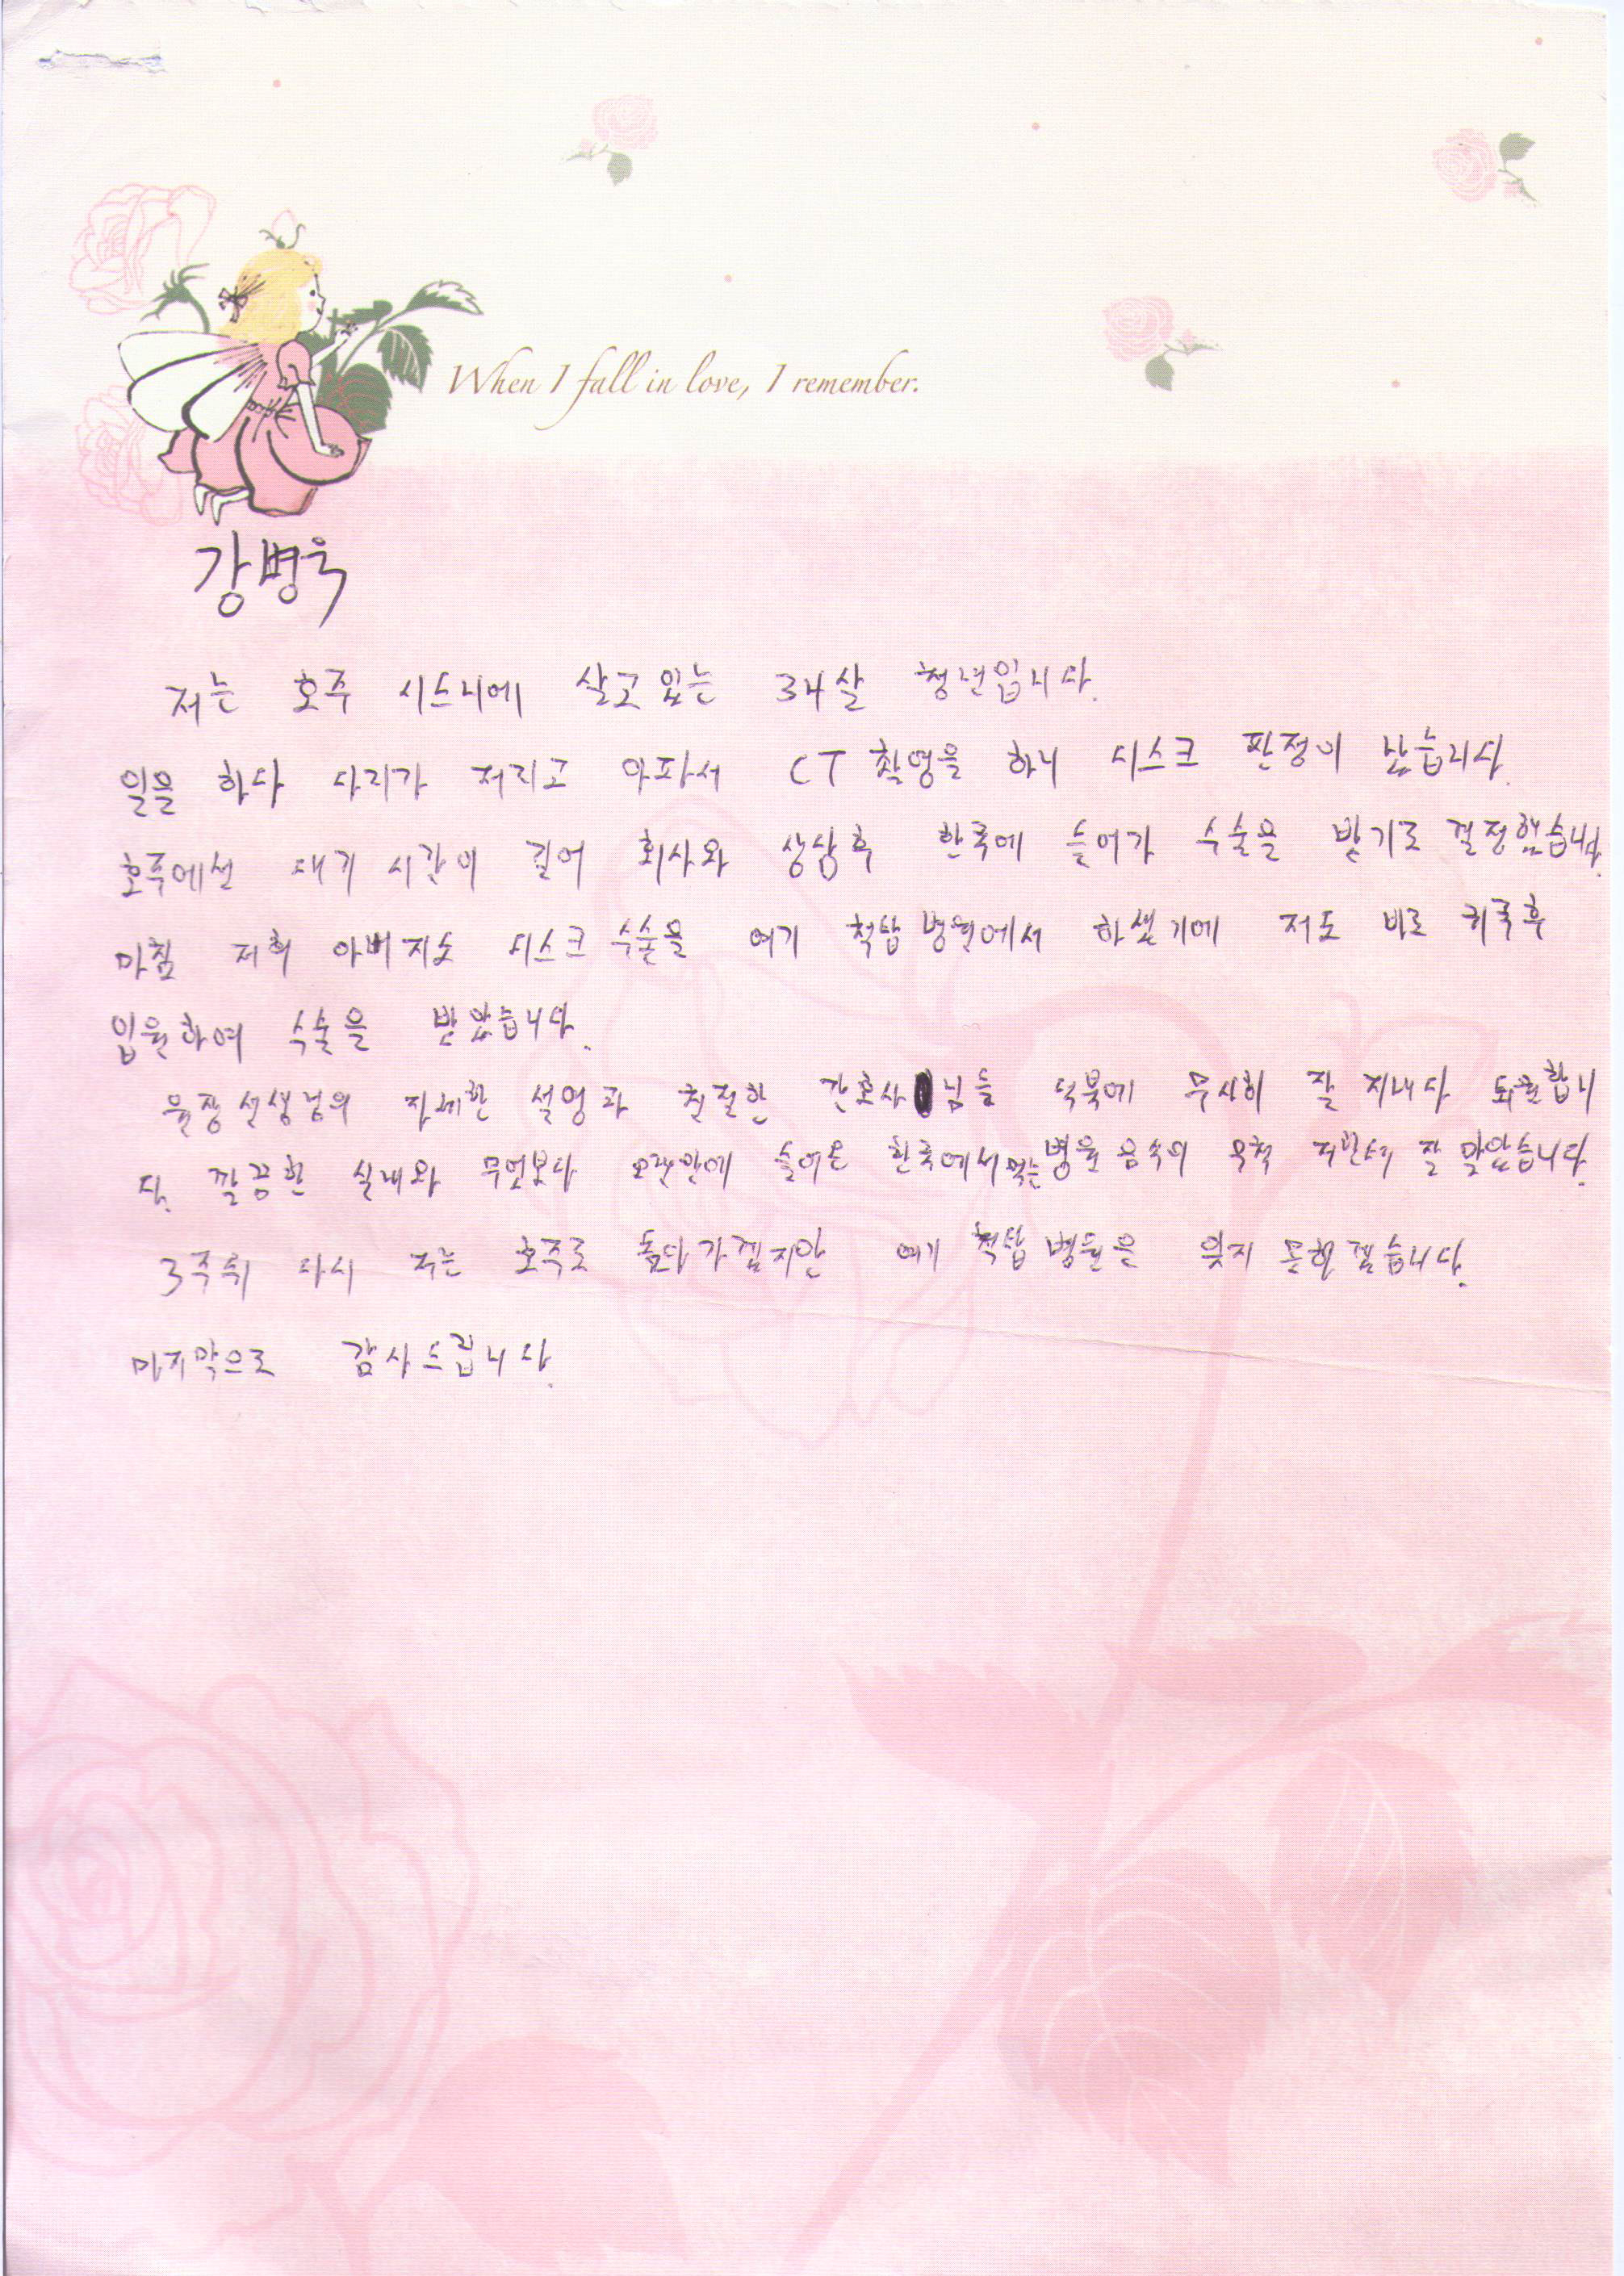 When I fall in love, I remember.
강병욱
저는 호주 시드니에 살고 있는 34살 청년입니다.
일을 하다 다리가 저리고 아파서 CT 촬영을 하니 디스크 판정이 났습니다.
호주에선 대기 시간이 길어 회사와 상담후 한국에 들어가 수술을 받기로 결정했습니다.
마침 저희 아버지도 디스크 수술을 여기 척탑 병원에서 하셨기에 저도 바로 귀국후
입원하여 수술을 받았습니다.
원장선생님의 자세한 설명과 친절한 간호사님들 덕북에 무사히 잘 지내다 퇴원합니
다. 깔끔한 실내와 무엇보다 오랜만에 들어온 한국에서 먹는 병원 음식이 무척 잘 맞았습니다.
3주뒤 다시 저는 호주로 돌아가겠지만 여기 척탑 병원을 잊지 못할겠습니다.
마지막으로 감사드립니다.